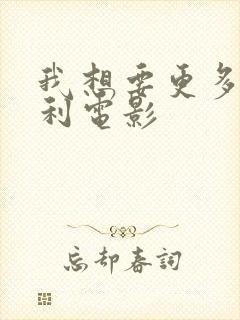 我想要更多
利電影
忘却春詞